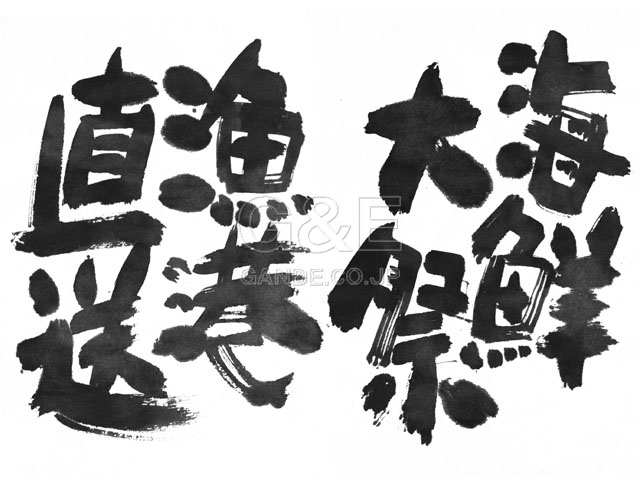 海鮮
大祭
漁港
直送
G&E
GANDE.CO.JP